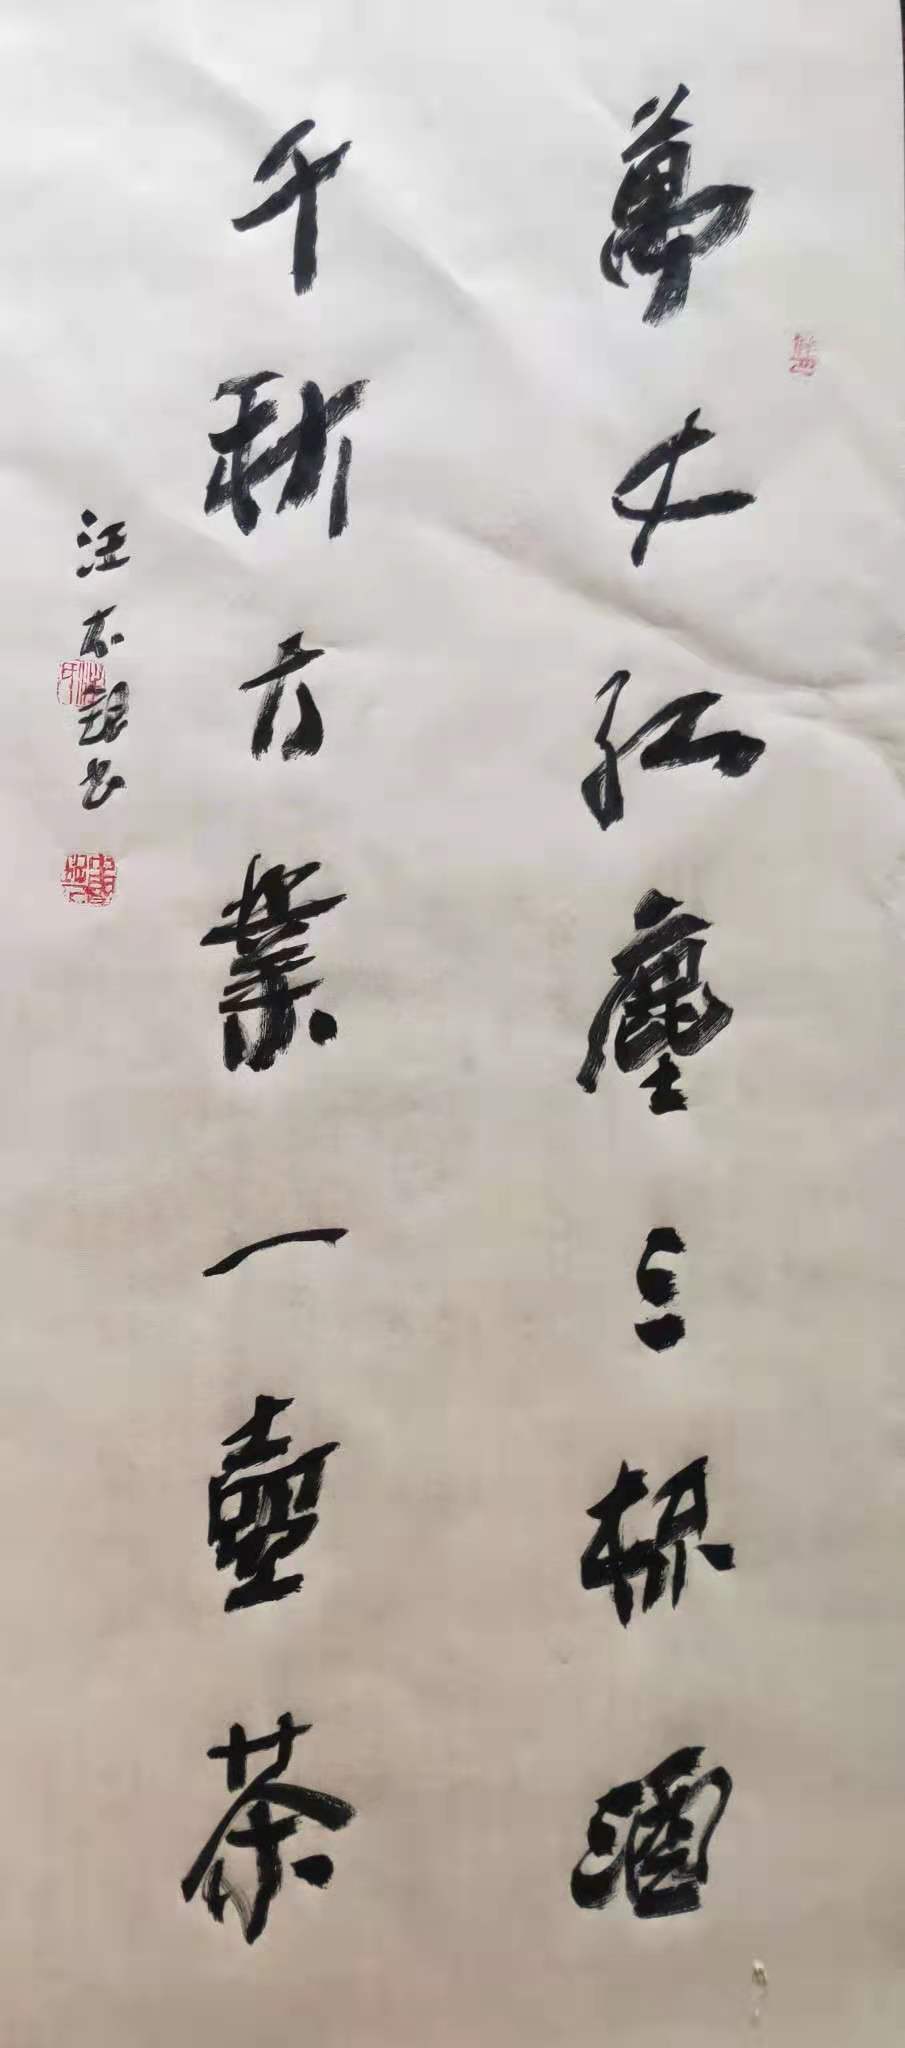 萬丈紅塵三杯酒
千秋大業一壺茶
汪 書